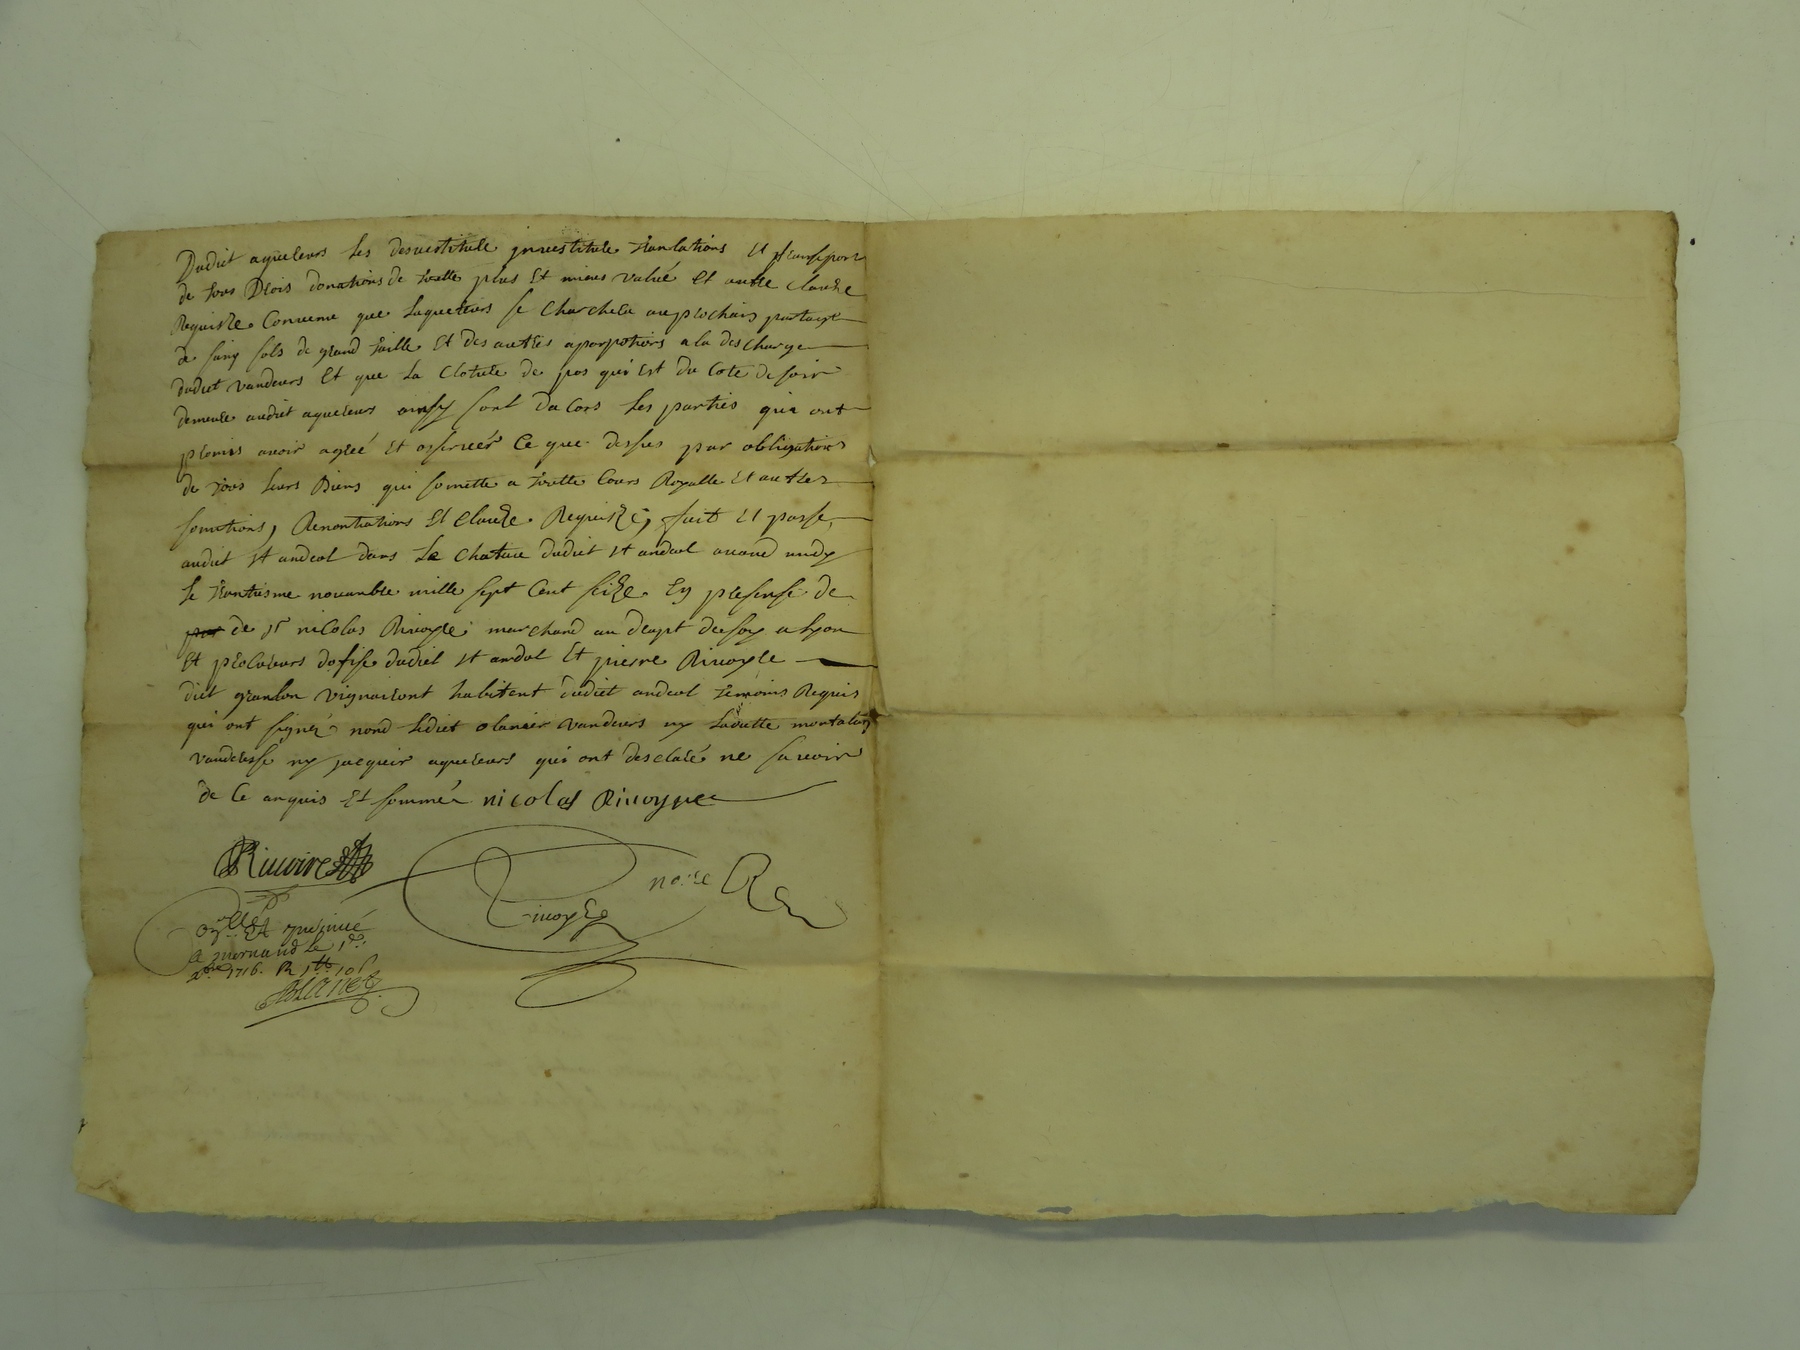 Dudict aquereurs les desvestiture jnvestiture translations Et transport
de tous Drois donations de toutte plus Et mieux value Et autre clauze
Requisze Convenu que Laquereurs se Chargera au prochain partaige
de sinq sols de grand taille Et des autres aporptions a la descharge
dudict vandeurs Et que La Cloture de pos qui Est du Cote de soir
demeure audict aquereurs ainsy sont Dacors Les parties qui ont
promis avoir agreé Et osserver Ce que dessus par obligations
de tous leurs Biens qui somette a toutte Cours Royalle Et autres
somitions, Renontiations Et Clauze Requisze, fait Et passe,
audict st andeol dans Le Chateau dudict st andeol avand midy
le trantiesme novambre mille sept Cent seize En presense de
de sr nicolas Rivoyre marchand au drapt de soy a Lyon
Et procureurs dofise dudict st andol Et pierre Rivoyre
dict granlon vigneront habitant dudict andeol temoins Requis
qui ont signez nond Ledict olanier vandeurs ny Laditte
vanderesse ny jacquier aquereurs qui ont desclaré ne savoir
de Ce anquis Et sommér nicolas Rivoyre
Riuoire
Rivoyre no:re R
Collé Et jnsinué
a mornand le 1er
xbre 1716. R 1tt 10s